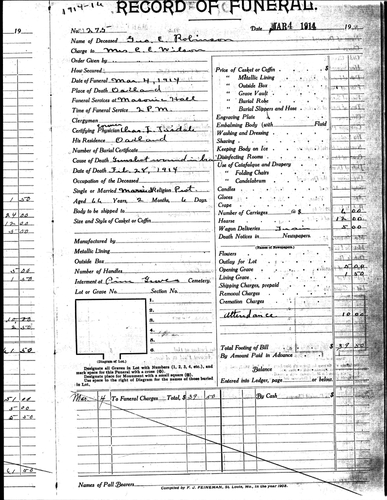 1914-14
RECORD OF FUNERAL.
19
No. 275 Date MAR 4 1914 19
Name of Deceased Geo. C. Robinson
Charge to Mrs. C. C. Wilson
Order Given by
How Secured
Date of Funeral Mar 4, 1914
Place of Death Oakland
Funeral Services at Masonic Hall
Time of Funeral Service 2 P.M.
Clergyman
Certifying Physician Coroner Chas. L. Tisdale
His Residence Oakland
Number of Burial Certificate
Cause of Death Gunshot wound in
Date of Death Feb. 28, 1914
Occupation of the Deceased
Single or Married Married Religion Prot.
Aged 64 Years, 2 Months, 6 Days
Body to be shipped to
Size and Style of Casket or Coffin
Manufactured by
Metallic Lining
Outside Box
Number of Handles
Interment at Pine Grove Cemetery.
Lot or Grave No. Section No.
1.
2.
3.
4.
5.
6.
(Diagram of Lot.)
Designate all Graves in Lot with Numbers (1, 2, 3, 4, etc.), and
mark space for this Funeral with a cross
Designate place for Monument with a small square
Use space to the right of Diagram for the names of those buried
in Lot.
Price of Casket or Coffin $
" Metallic Lining
" Outside Box
" Grave Vault
" Burial Robe
" Burial Slippers and Hose
Engraving Plate
Embalming Body (with Fluid
Washing and Dressing
Shaving
Keeping Body on Ice
Disinfecting Rooms
Use of Catafalque and Drapery
" Folding Chairs
" Candelabrum
Candles
Gloves
Crape
Number of Carriages @$ 6 00
Hearse 12 00
Wagon Deliveries Train 5 00
Death Notices in Newspapers
(Names of Newspapers.)
Flowers
Outlay for Lot
Opening Grave 5 00
Lining Grave 1 50
Shipping Charges, prepaid
Removal Charges
Cremation Charges
Attendance 10 00
Total Footing of Bill $ 39 50
By Amount Paid in Advance
Balance
Entered into Ledger, page or below.
Mar 4 To Funeral Charges Total, $ 39 50 By Cash
Names of Pall Bearers
Compiled by F. J. FEINEMAN, St. Louis, Mo., in the year 1903.
1 50
24 00
12 00
5 00
1 50
61 50
51 00
5 00
5 00
61 50